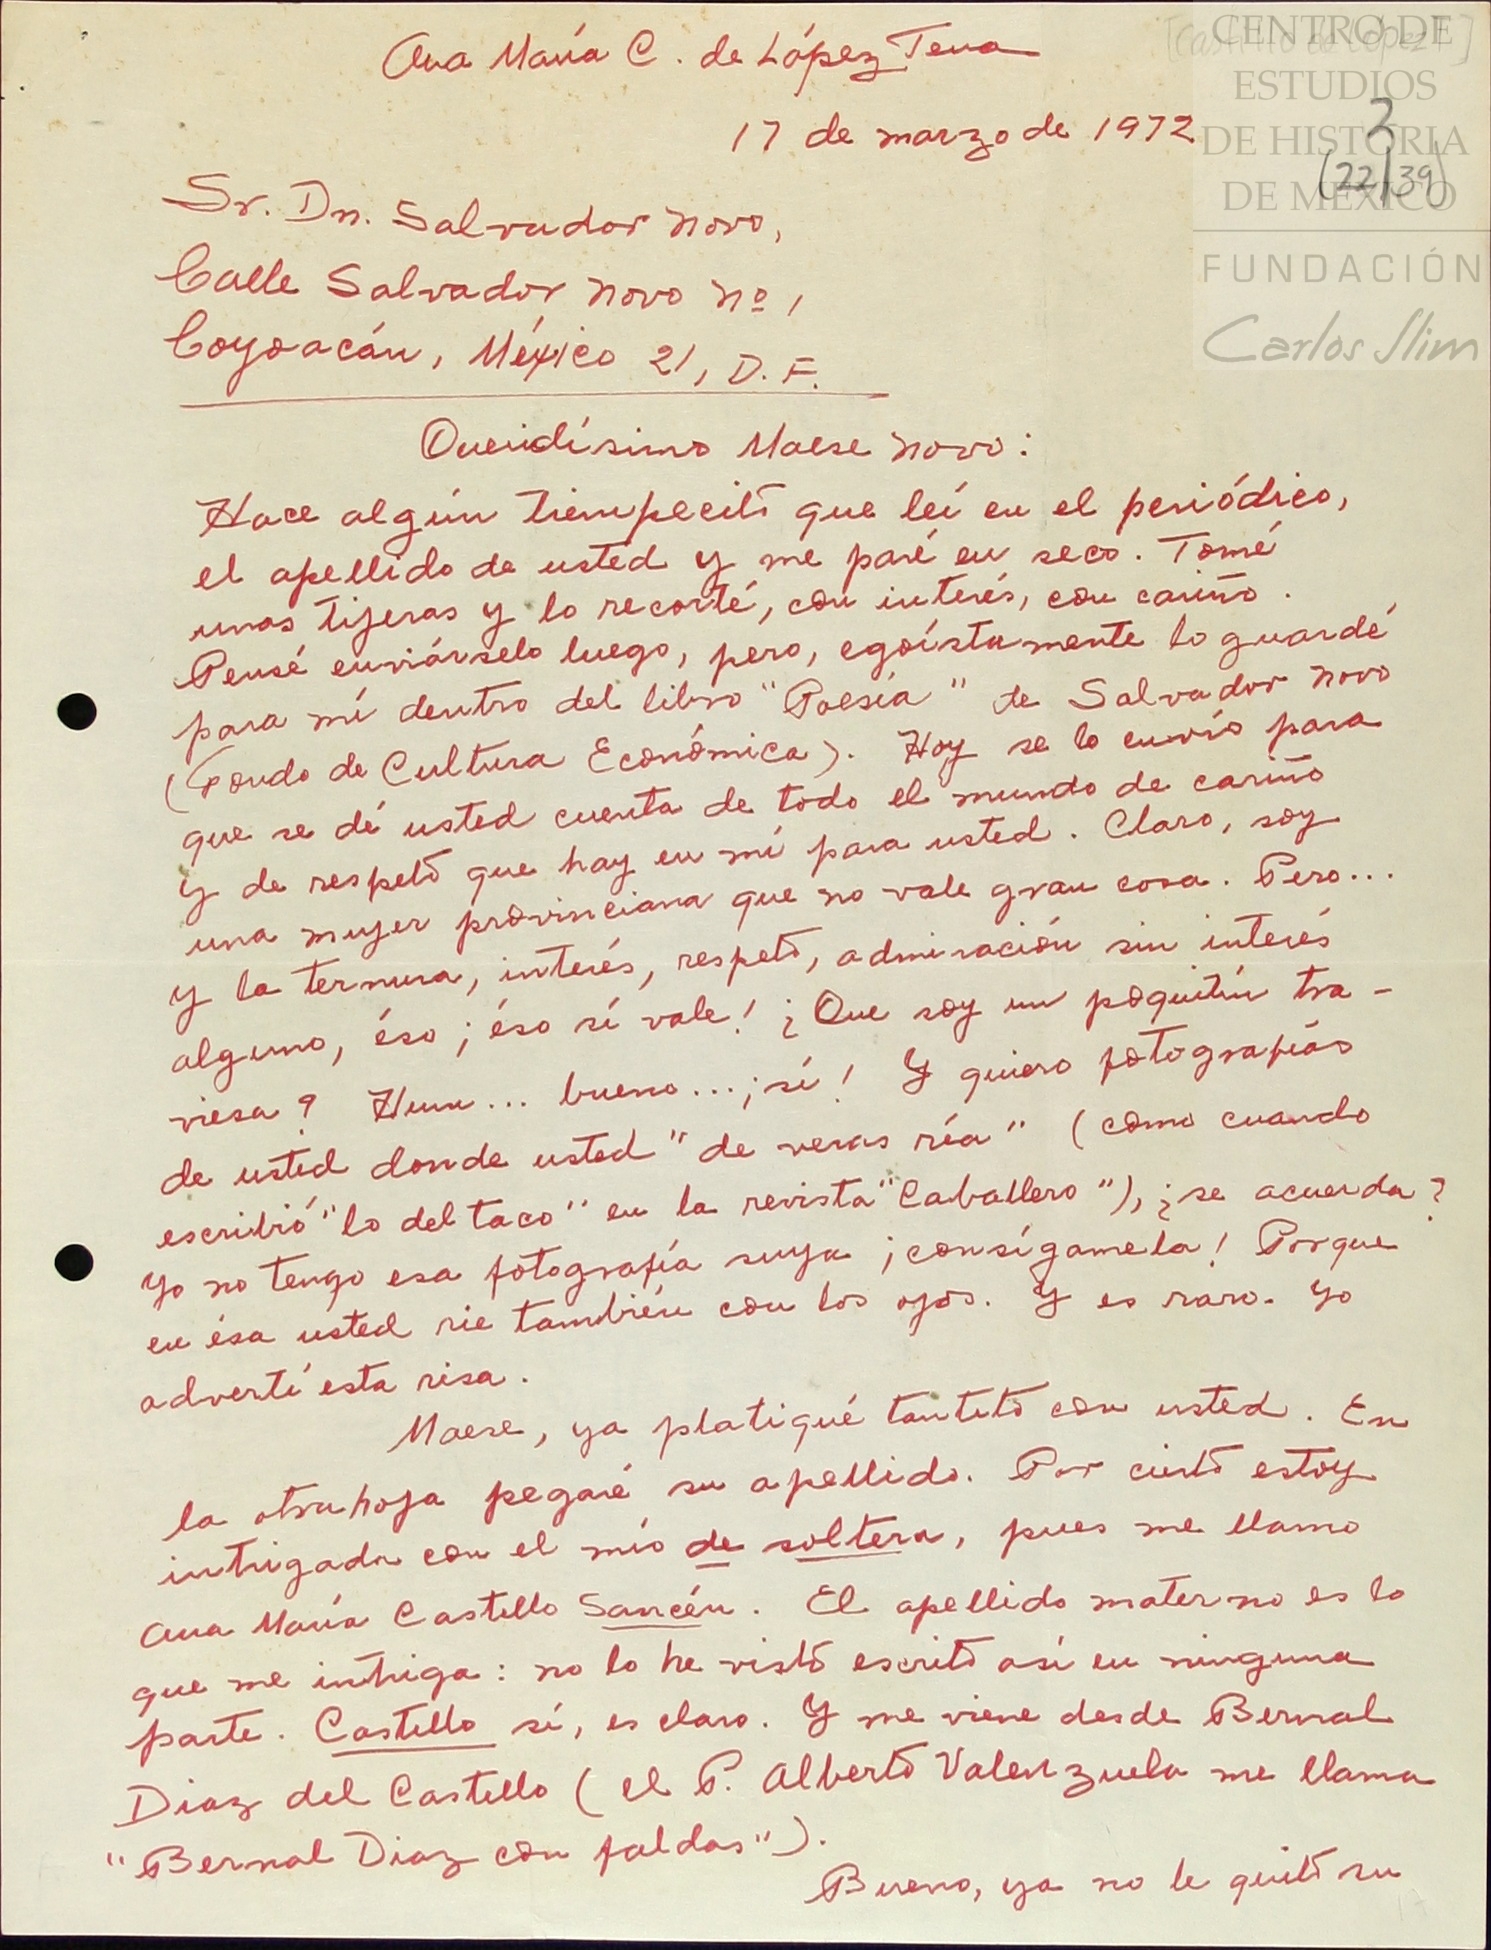 Ana María C. de López Tena
[Castillo de López T]
17 de marzo de 1972
2
(22/39)
CENTRO DE
ESTUDIOS
DE HISTORIA
DE MÉXICO
FUNDACIÓN
Carlos Slim
Sr. Dn. Salvador Novo,
Calle Salvador Novo Nº 1
Coyoacán, México 21, D. F.
Queridísimo Maese Novo:
Hace algún tiempecito que leí en el periódico,
el apellido de usted y me paré en seco. Tomé
unas tijeras y lo recorté, con interés, con cariño.
Pensé enviárselo luego, pero, egoístamente lo guardé
para mí dentro del libro "Poesía" de Salvador Novo
(Fondo de Cultura Económica). Hoy se lo envío para
que se dé usted cuenta de todo el mundo de cariño
y de respeto que hay en mí para usted. Claro, soy
una mujer provinciana que no vale gran cosa. Pero...
y la ternura, interés, respeto, admiración sin interés
alguno, éso ¡éso sí vale! ¿Que soy un poquitín tra-
viesa? Hum... bueno...¡sí! Y quiero fotografías
de usted donde usted "de veras ría" (como cuando
escribió "lo del taco" en la revista "Caballero"), ¿se acuerda?
Yo no tengo esa fotografía suya ¡consígamela! Porque
en ésa usted rie también con los ojos. Y es raro. Yo
advertí esta risa.
Maese, ya platiqué tantito con usted. En
la otra hoja pegaré su apellido. Por cierto estoy
intrigada con el mío de soltera, pues me llamo
Ana María Castillo Sancén. El apellido materno es lo
que me intriga: no lo he visto escrito así en ninguna
parte. Castillo sí, es claro. Y me viene desde Bernal
Diaz del Castillo (el P. Alberto Valenzuela me llama
"Bernal Diaz con faldas").
Bueno, ya no le quito su